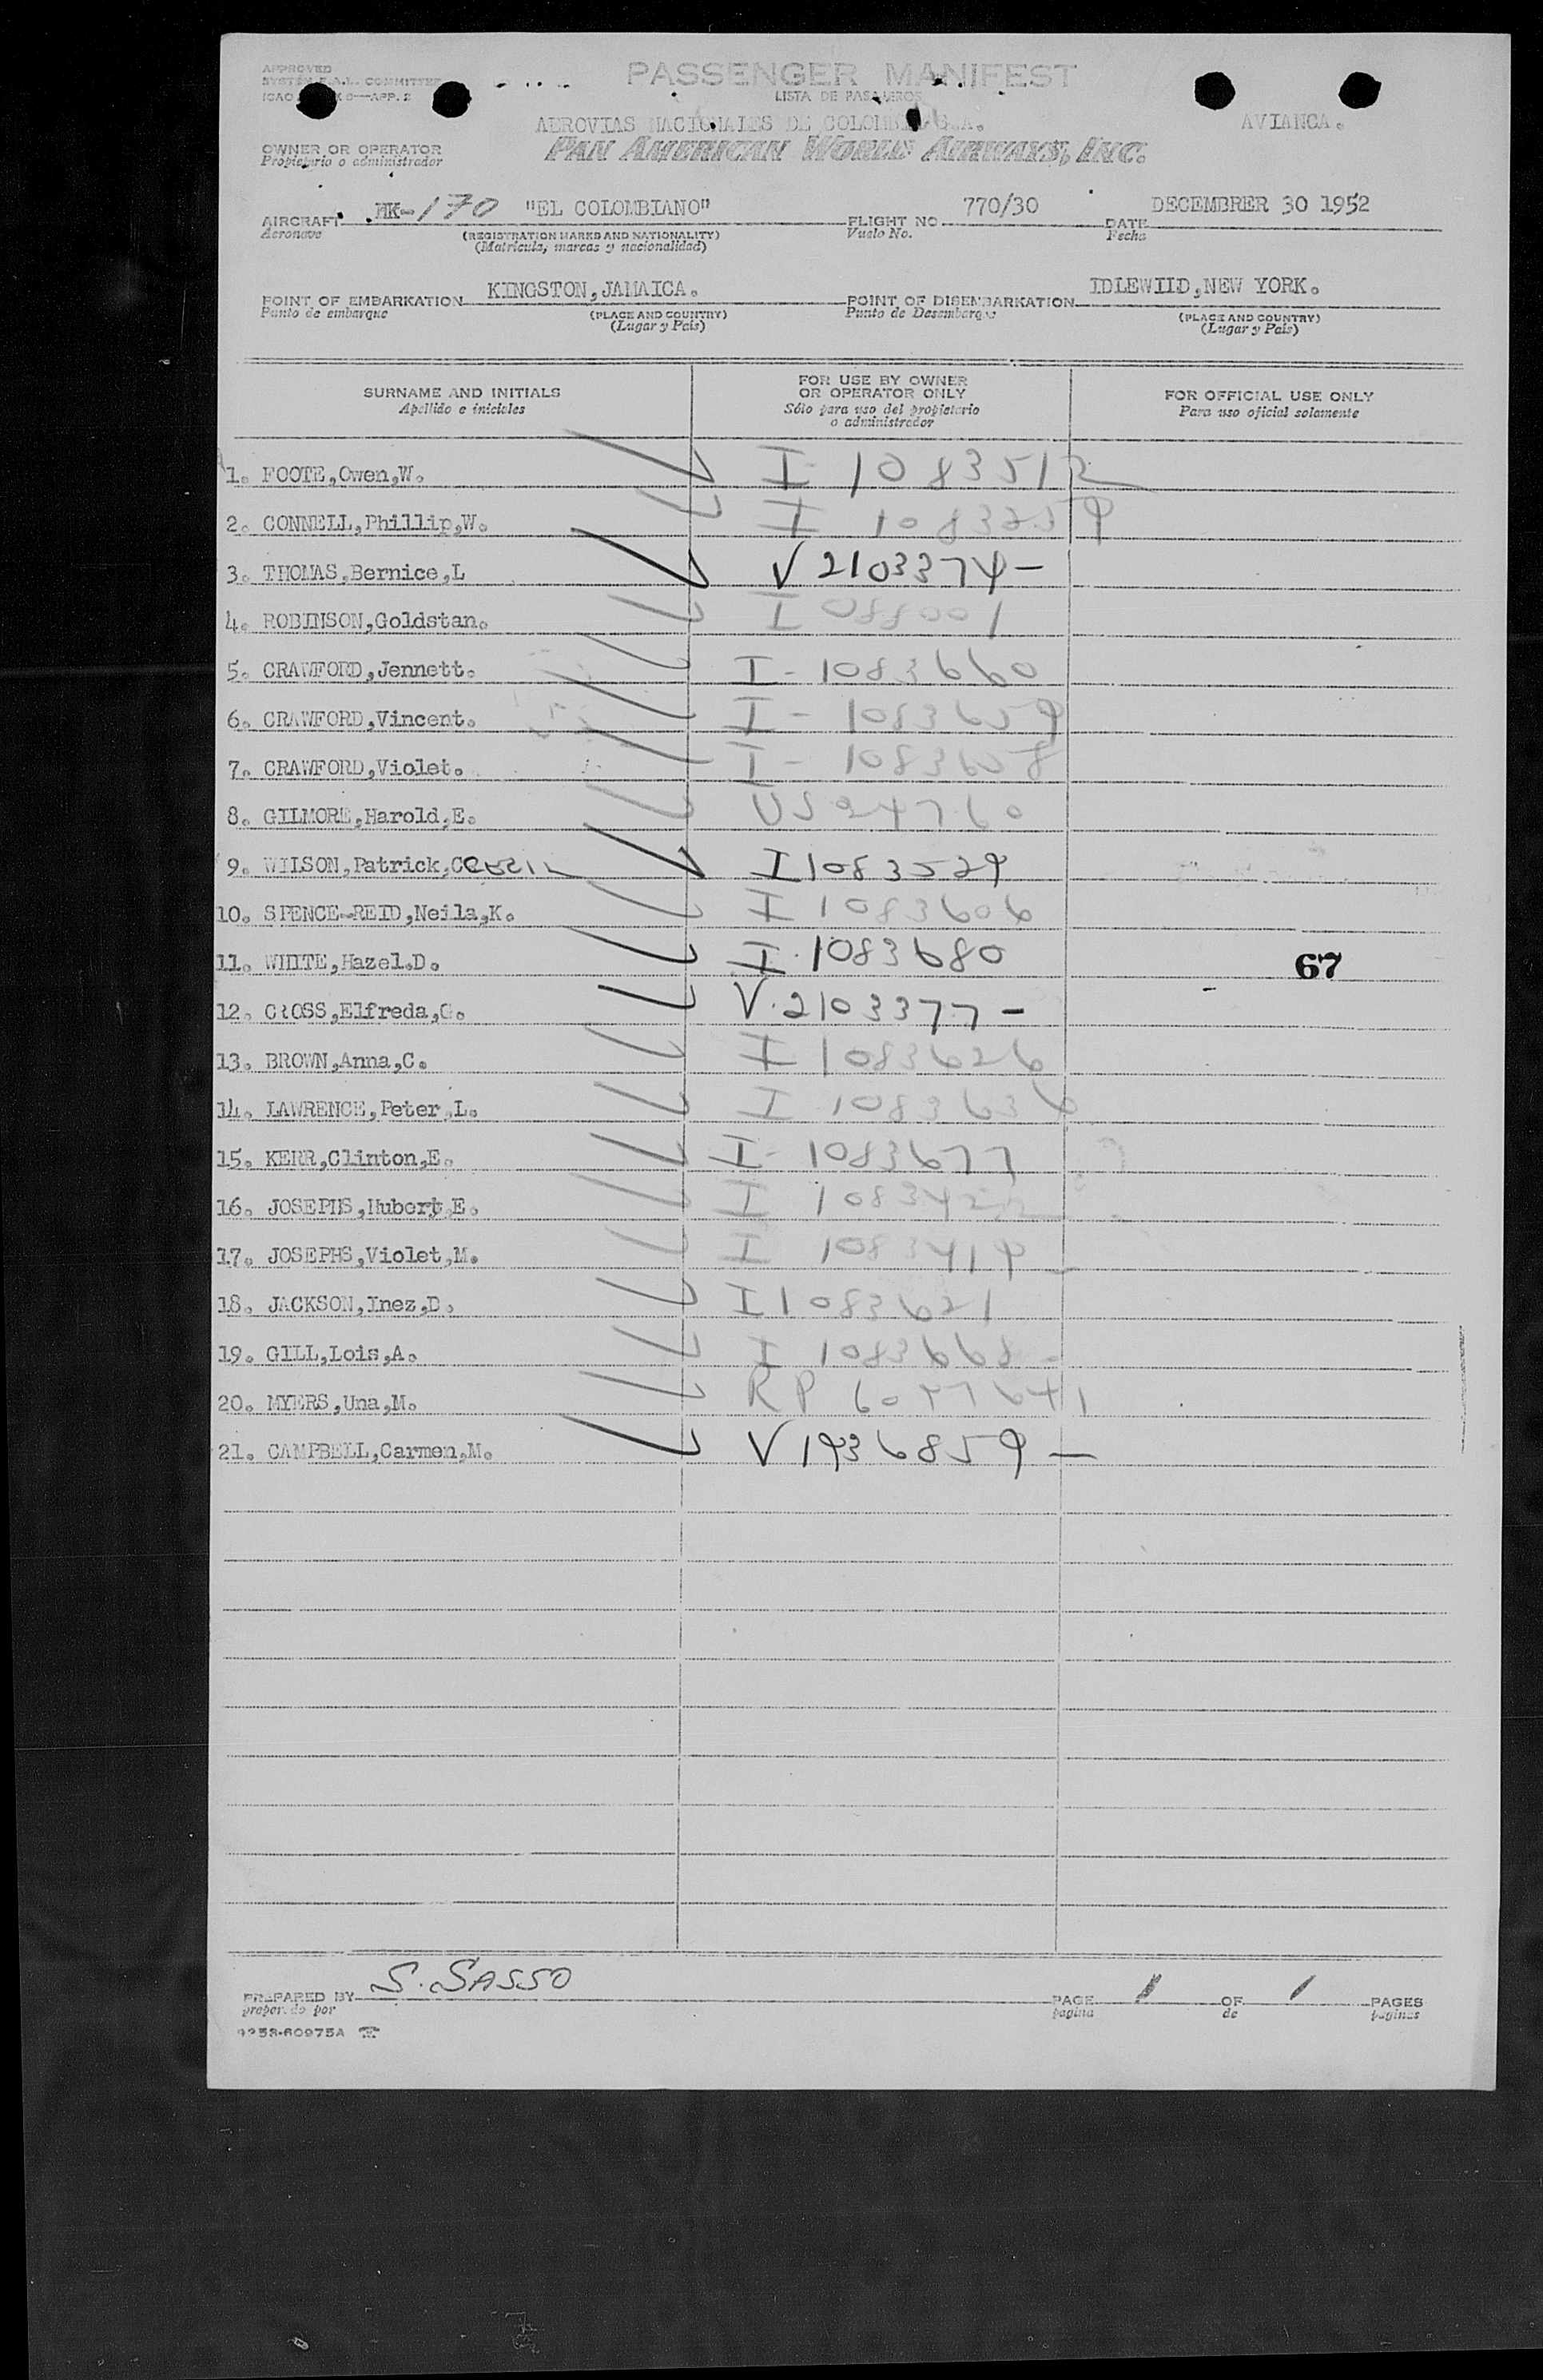 APPROVED
PASSENGER MANIFEST
LISTA DE PASAJEROS
AEROVIAS NACIONALES DE COLOMBIA S.A. AVIANCA.
OWNER OR OPERATOR
Propietario o administrador
PAN AMERICAN WORLD AIRWAYS, INC.
AIRCRAFT HK-170 "EL COLOMBIANO" FLIGHT NO. 770/30 DATE DECEMBRER 30 1952
Aeronave (REGISTRATION MARKS AND NATIONALITY) Vuelo No. Fecha
(Matrícula, marcas y nacionalidad)
POINT OF EMBARKATION KINGSTON,JAMAICA. POINT OF DISEMBARKATION IDLEWIID,NEW YORK.
Punto de embarque (PLACE AND COUNTRY) Punto de Desembarque (PLACE AND COUNTRY)
(Lugar y País) (Lugar y País)
SURNAME AND INITIALS FOR USE BY OWNER OR OPERATOR ONLY FOR OFFICIAL USE ONLY
Apellido e iniciales Sólo para uso del propietario o administrador Para uso oficial solamente
1. FOOTE,Owen,W. I-1083512
2. CONNELL,Phillip,W. I
3. THOMAS,Bernice,L V2103374-
4. ROBINSON,Goldstan. I 088001
5. CRAWFORD,Jennett. I-1083660
6. CRAWFORD,Vincent. I-1083659
7. CRAWFORD,Violet. I-
8. GILMORE,Harold,E. US 24760
9. WILSON,Patrick,CECIL I1083529
10. SPENCE-REID,Neila,K. I 1083606
11. WHITE,Hazel.D. I.1083680 67
12. CROSS,Elfreda,G. V.2103377-
13. BROWN,Anna,C. I 1083626
14. LAWRENCE,Peter,L. I 1083636
15. KERR,Clinton,E. I-1083677
16. JOSEPHS,Hubert,E. I
17. JOSEPHS,Violet,M. I 1083419
18. JACKSON,Inez,D. I1083621
19. GILL,Lois,A. I 1083668
20. MYERS,Una,M. RP
21. CAMPBELL,Carmen,M. V1936859-
PREPARED BY S. SASSO PAGE 1 OF 1 PAGES
preparado por página de páginas